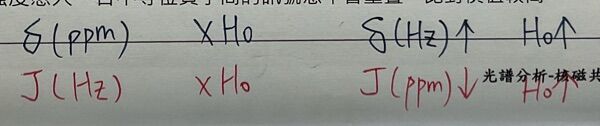 δ(ppm) X H₀ δ(Hz)↑ H₀↑
J(Hz) X H₀ J(ppm)↓ H₀↑
光譜分析-核磁共